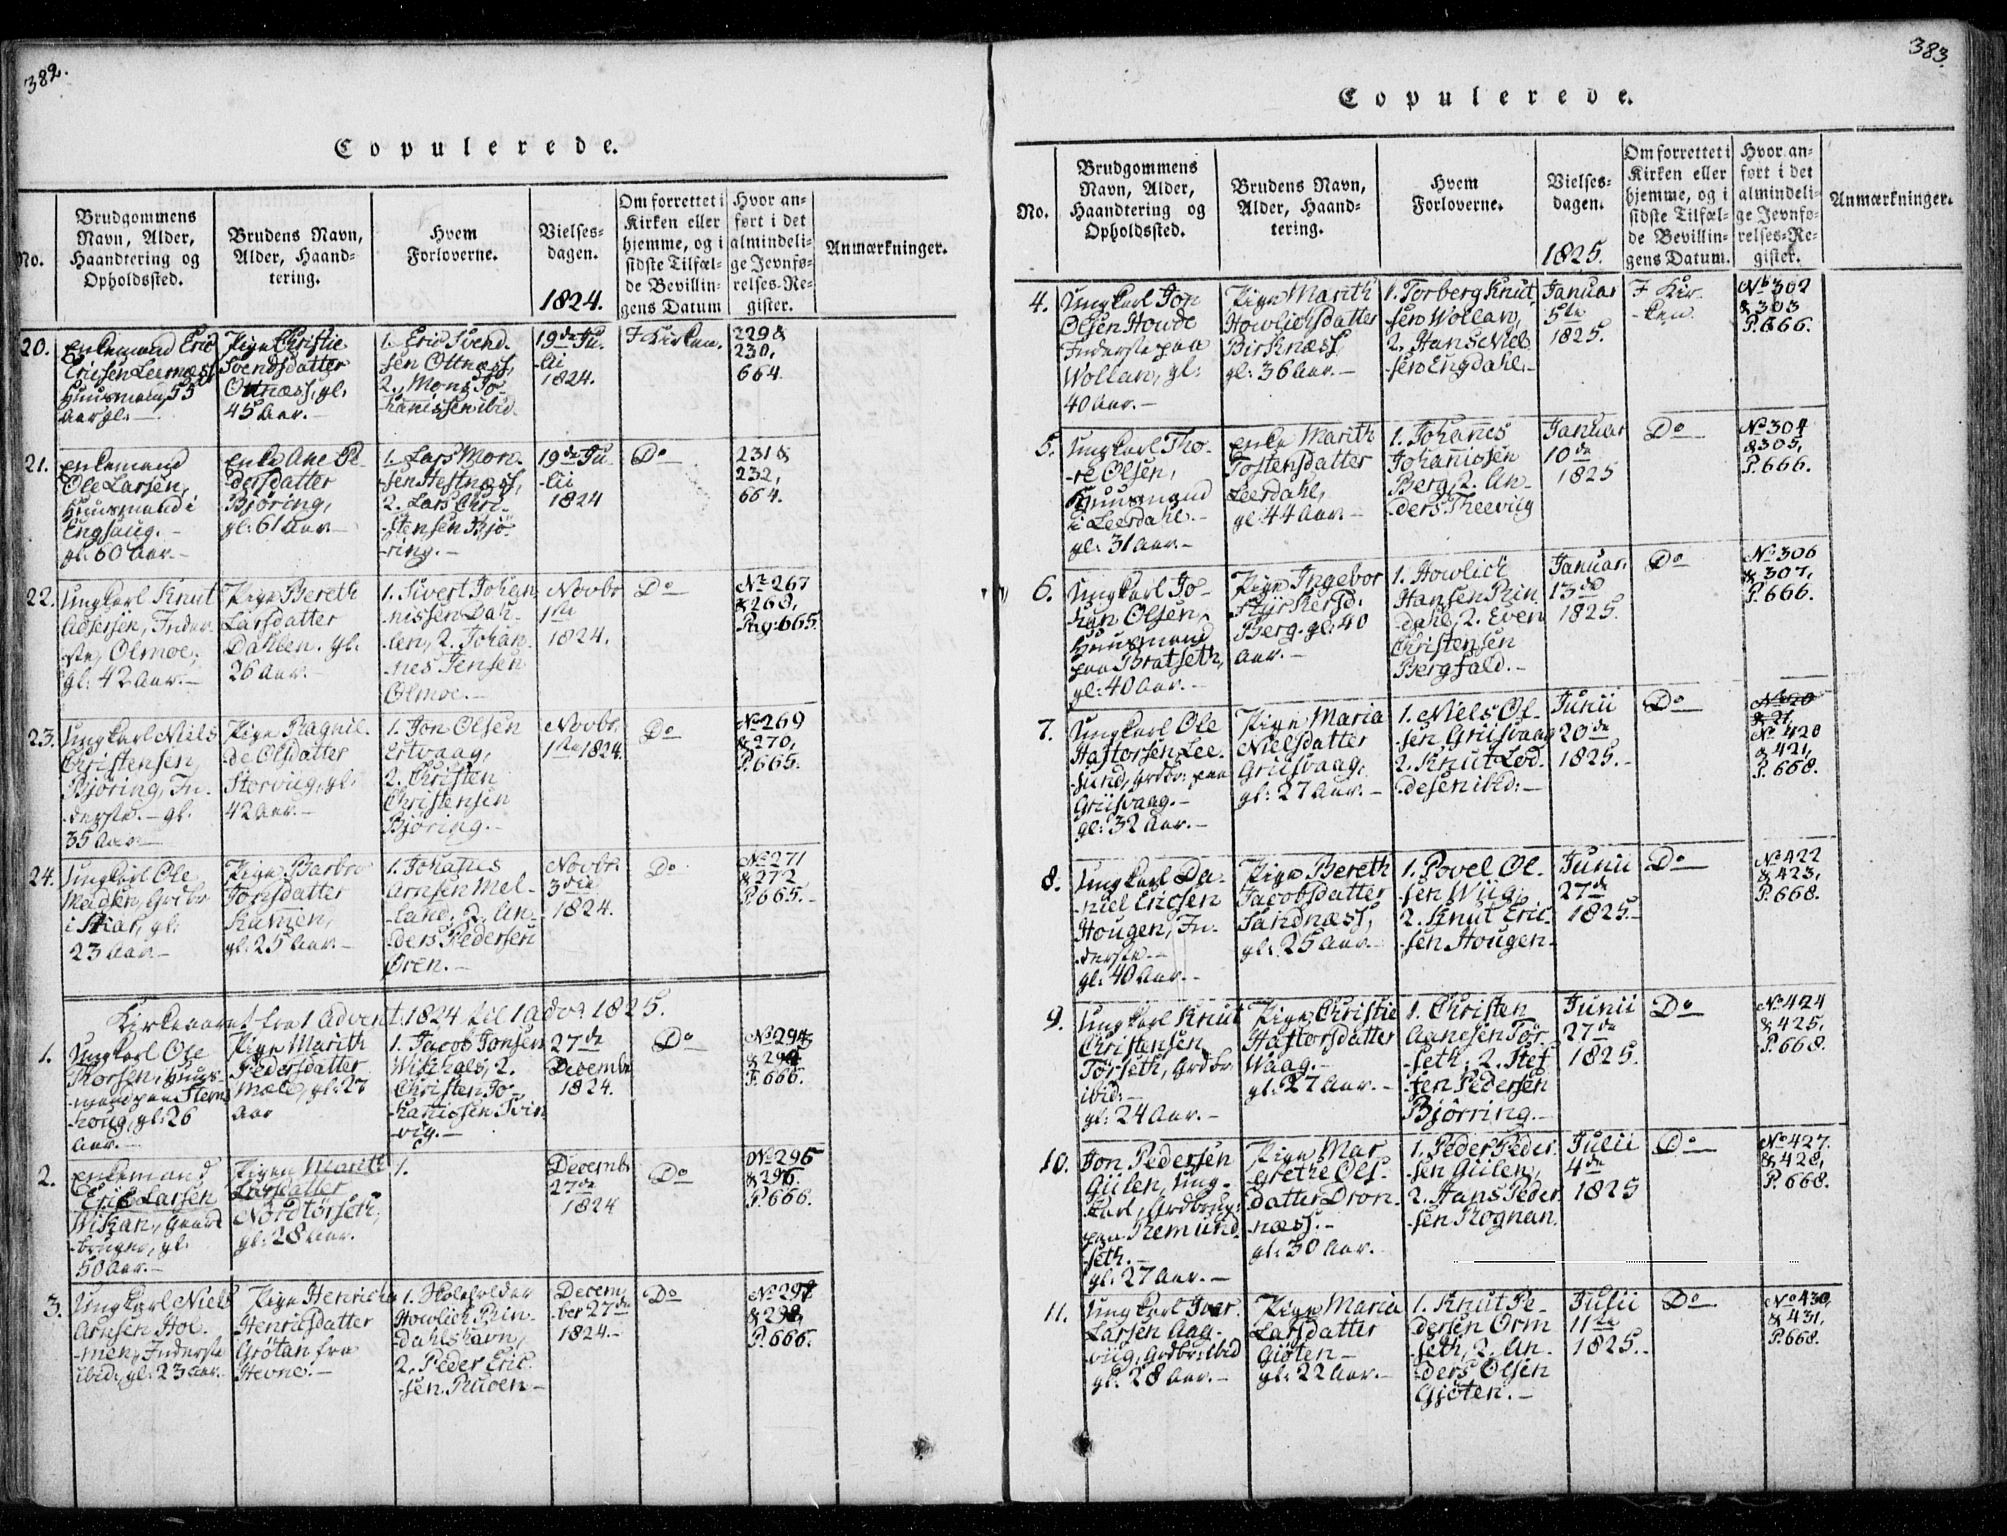 382.
Copulerede.
No.
Brudgommens
Navn, Alder,
Haandtering og
Opholdssted.
Brudens Navn,
Alder, Haand-
tering.
Hvem
Forloverne.
Vielses-
dagen.
1824.
Om forrettet i
Kirken eller
hjemme, og i
sidste Tilfæl-
de Bevillin-
gens Datum
Hvor an-
ført i det
almindeli-
ge Jevnfø-
relses-Re-
gister.
Anmærkninger.
20.
Enkemand Eric
Ericsen Leernæss
Huusmand, 55
aar gl. –
Pige Christie
Svendsdatter
Ottnæss, gl.
45 Aar. –
1. Eric Svend-
sen Ottnæss,
2. Mons Jo-
hanissen ibid.
19de Ju-
lii
1824.
I Kirken.
229 &
230,
664.
21.
Enkemand
Ole Larsen,
Huusmand i
Engsaug. –
gl. 60 Aar. –
Enke Ane Pe-
dersdatter
Björing,
gl: 61 Aar –
1. Lars Mon-
sen Hestnæss,
2. Lars Chri-
stensen Bjö-
ring. –
19de Ju-
lii
1824
Do
231 &
232,
664.
22.
Ungkarl Knut
Adsersen, Inder-
ste, Olmoe,
gl: 42 Aar. –
Pige Bereth
Larsdatter
Dahlen. gl.
26 Aar. –
1. Sivert Johan-
nissen Dah-
len, 2. Johan-
nes Jensen
Olmoe. –
Novbr
1ste
1824.
Do
No 267
& 268,
Pag: 665.
23.
Ungkarl Niels
Christensen,
Björing, In-
derste. – gl.
35 Aar –
Pige Ragnil-
de Olsdatter
Storviig, gl:
42 Aar. –
1. Jon Olsen
Ertvaag,
2. Christen
Christensen
Björing. –
Novbr.
1ste 1824.
Do
No 269
& 270,
P. 665.
24.
Ungkarl Ole
Madsen, Grdbr.
i Skar, gl:
23 Aar. –
Pige Barbro
Jonsdatter
gl: 25 Aar. –
1. Johanes
Arnsen Mel-
land, 2. An-
ders Pedersen
Ören. –
Novbr.
3die
1824.
Do
No 271
& 272
P. 665. –
Kirkeaaret fra 1 Advent 1824 til 1 Adv: 1825.
1.
Ungkarl Ole
Thorsen, Huus-
mand paa Stern-
houg, gl: 26
Aar. –
Pige Marith
Pedersdatter
Mæle, gl: 27
Aar
1. Jacob Jonsen
Wikhals, 2.
Christen Jo-
hanissen Svin-
vig. –
27de
Decembr
1824.
Do
No 293
& 294
P. 666.
2.
Enkemand
Eric Larsen
Wikan, Gaard-
bruger, gl.
50 Aar. –
Pigen Marith
Larsdatter
Nordtörseth,
gl: 28 Aar.
1.
Decembr
27de
1824
Do
No 295
& 296.
P. 666.
3.
Ungkarl Niels
Arnsen Hol-
men, Inderste
ibid., gl: 23 aar. –
Pige Henricha
Henricsdatter
Grötan fra
Hevne. –
1. Skolholder
Howlich Rin-
dahlshavn,
2. Peder Eric-
sen Ruoen –
Decem-
ber 27de
1824. –
Do
No 297
& 298,
P. 666.
383.
Copulerede.
No.
Brudgommens
Navn, Alder,
Haandtering og
Opholdssted.
Brudens Navn,
Alder, Haand-
tering.
Hvem
Forloverne.
Vielses-
dagen.
1825.
Om forrettet i
Kirken eller
hjemme, og i
sidste Tilfæl-
de Bevillin-
gens Datum.
Hvor an-
ført i det
almindeli-
ge Jevnfø-
relses-Re-
gister.
Anmærkninger.
4.
Ungkarl Jon
Olsen Howde
Inderste paa
Wollan, gl:
40 Aar. –
Pige Marith
Howlichsdatter
Birknæss,
gl: 36 Aar. –
1. Torberg Knut-
sen Wollan,
2. Hans Niel-
sen Engdahl. –
Januar
5te
1825.
I Kir-
ken.
No 302
& 303
P. 666.
5.
Ungkarl Tho-
re Olsen,
Huusmand
i Leerdahl. –
gl: 31 Aar. –
Enke Marith
Tostensdatter
Leerdahl,
gl: 44 Aar. –
1. Johanes
Johanissen
Berg, 2. An-
ders Theeviig
Januar
10de
1825
Do
No 304
& 305,
P. 666.
6.
Ungkarl Jo-
han Olsen,
Huusmand
paa Bratseth,
gl: 40 Aar. –
Pige Ingebor
Styrkersd.
Berg. gl: 40
Aar. –
1. Howlich
Hansen Rin-
dahl, 2. Even
Christensen
Bergfald. –
Januar.
13de
1825.
Do
No 306
& 307,
P. 666.
7.
Ungkarl Ole
Hastorsen Lee-
sund, Grdbr. paa
Griisvaag. –
gl: 32 Aar. –
Pige Maria
Nielsdatter
Griisvaag,
gl: 27 Aar. –
1. Niels Ol-
sen, Griisvaag
2. Knut Lod-
desen ibid: –
Junii
20de
1825. –
Do
No 20
& 21,
No 420
& 421,
P. 668.
8.
Ungkarl Da-
niel Ericsen
Hougen, In-
derste. –
gl: 40 Aar. –
Pige Bereth
Jacobsdatter
Sandnæss,
gl: 25 Aar. –
1. Povel Ol-
sen Wiig,
2. Knut Eric-
sen Hougen –
Junii
27de
1825. –
Do
No 422
& 423,
P. 668.
9.
Ungkarl Knut
Christensen
Törseth, Grdbr.
ibid: –
gl: 24 Aar. –
Pige Christie
Hastorsdatter
Waag. –
gl: 27 Aar. –
1. Christen
Aanesen Tör-
seth, 2. Stef-
fen Pedersen
Bjørring. –
Junii
27de
1825.
Do
No 424
& 425,
P. 668.
10.
Jon Pedersen
Gülen, Ung-
karl, Grdbrug:
paa Remund-
seth. –
gl: 27 Aar. –
Pige Mar-
grethe Ols-
datter Dron-
næss. –
gl: 30 Aar.
1. Peder Peder-
sen Gülen,
2. Hans Peder-
sen Rognan.
Julii
4de
1825
Do
No 427.
& 428,
P. 668.
11.
Ungkarl Iver
Larsen Aag-
viig, Grdbr. ibid
gl: 28 Aar. –
Pige Maria
Larsdatter
Giöten –
gl: 22 Aar. –
1. Knut Pe-
dersen Orm-
seth, 2. An-
ders Olsen
Gjöten. –
Julii
11te
1825. –
Do
No 430,
& 431,
P. 668.